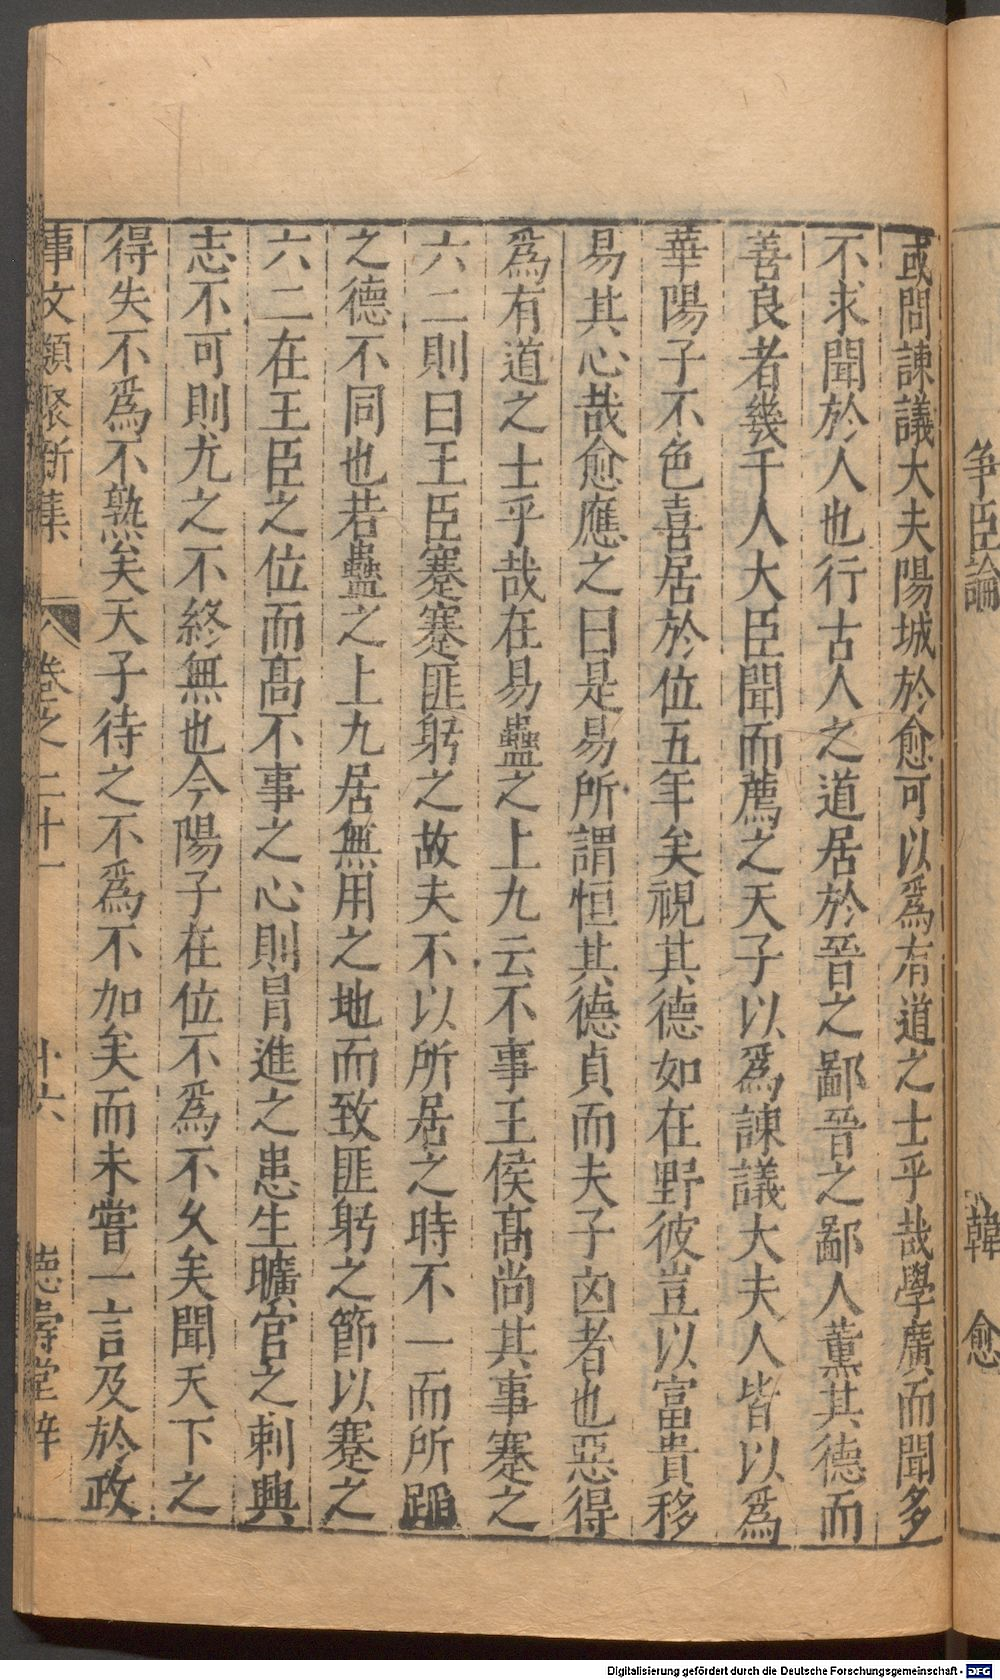 爭臣論 韓愈
或問諫議大夫陽城於愈可以爲有道之士乎哉學廣而聞多
不求聞於人也行古人之道居於晉之鄙晉之鄙人薰其德而
善良者幾千人大臣聞而薦之天子以爲諫議大夫人皆以爲
華陽子不色喜居於位五年矣視其德如在野彼豈以富貴移
易其心哉愈應之曰是易所謂恒其德貞而夫子凶者也惡得
爲有道之士乎哉在易蠱之上九云不事王侯髙尚其事蹇之
六二則曰王臣蹇蹇匪躬之故夫不以所居之時不一而所蹈
之德不同也若蠱之上九居無用之地而致匪躬之節以蹇之
六二在王臣之位而髙不事之心則冐進之患生曠官之刺興
志不可則尤之不終無也今陽子在位不爲不久矣聞天下之
得失不爲不熟矣天子待之不爲不加矣而未嘗一言及於政
事文類聚新集 卷之二十一 十六 德壽堂梓
Digitalisierung gefördert durch die Deutsche Forschungsgemeinschaft - DFG